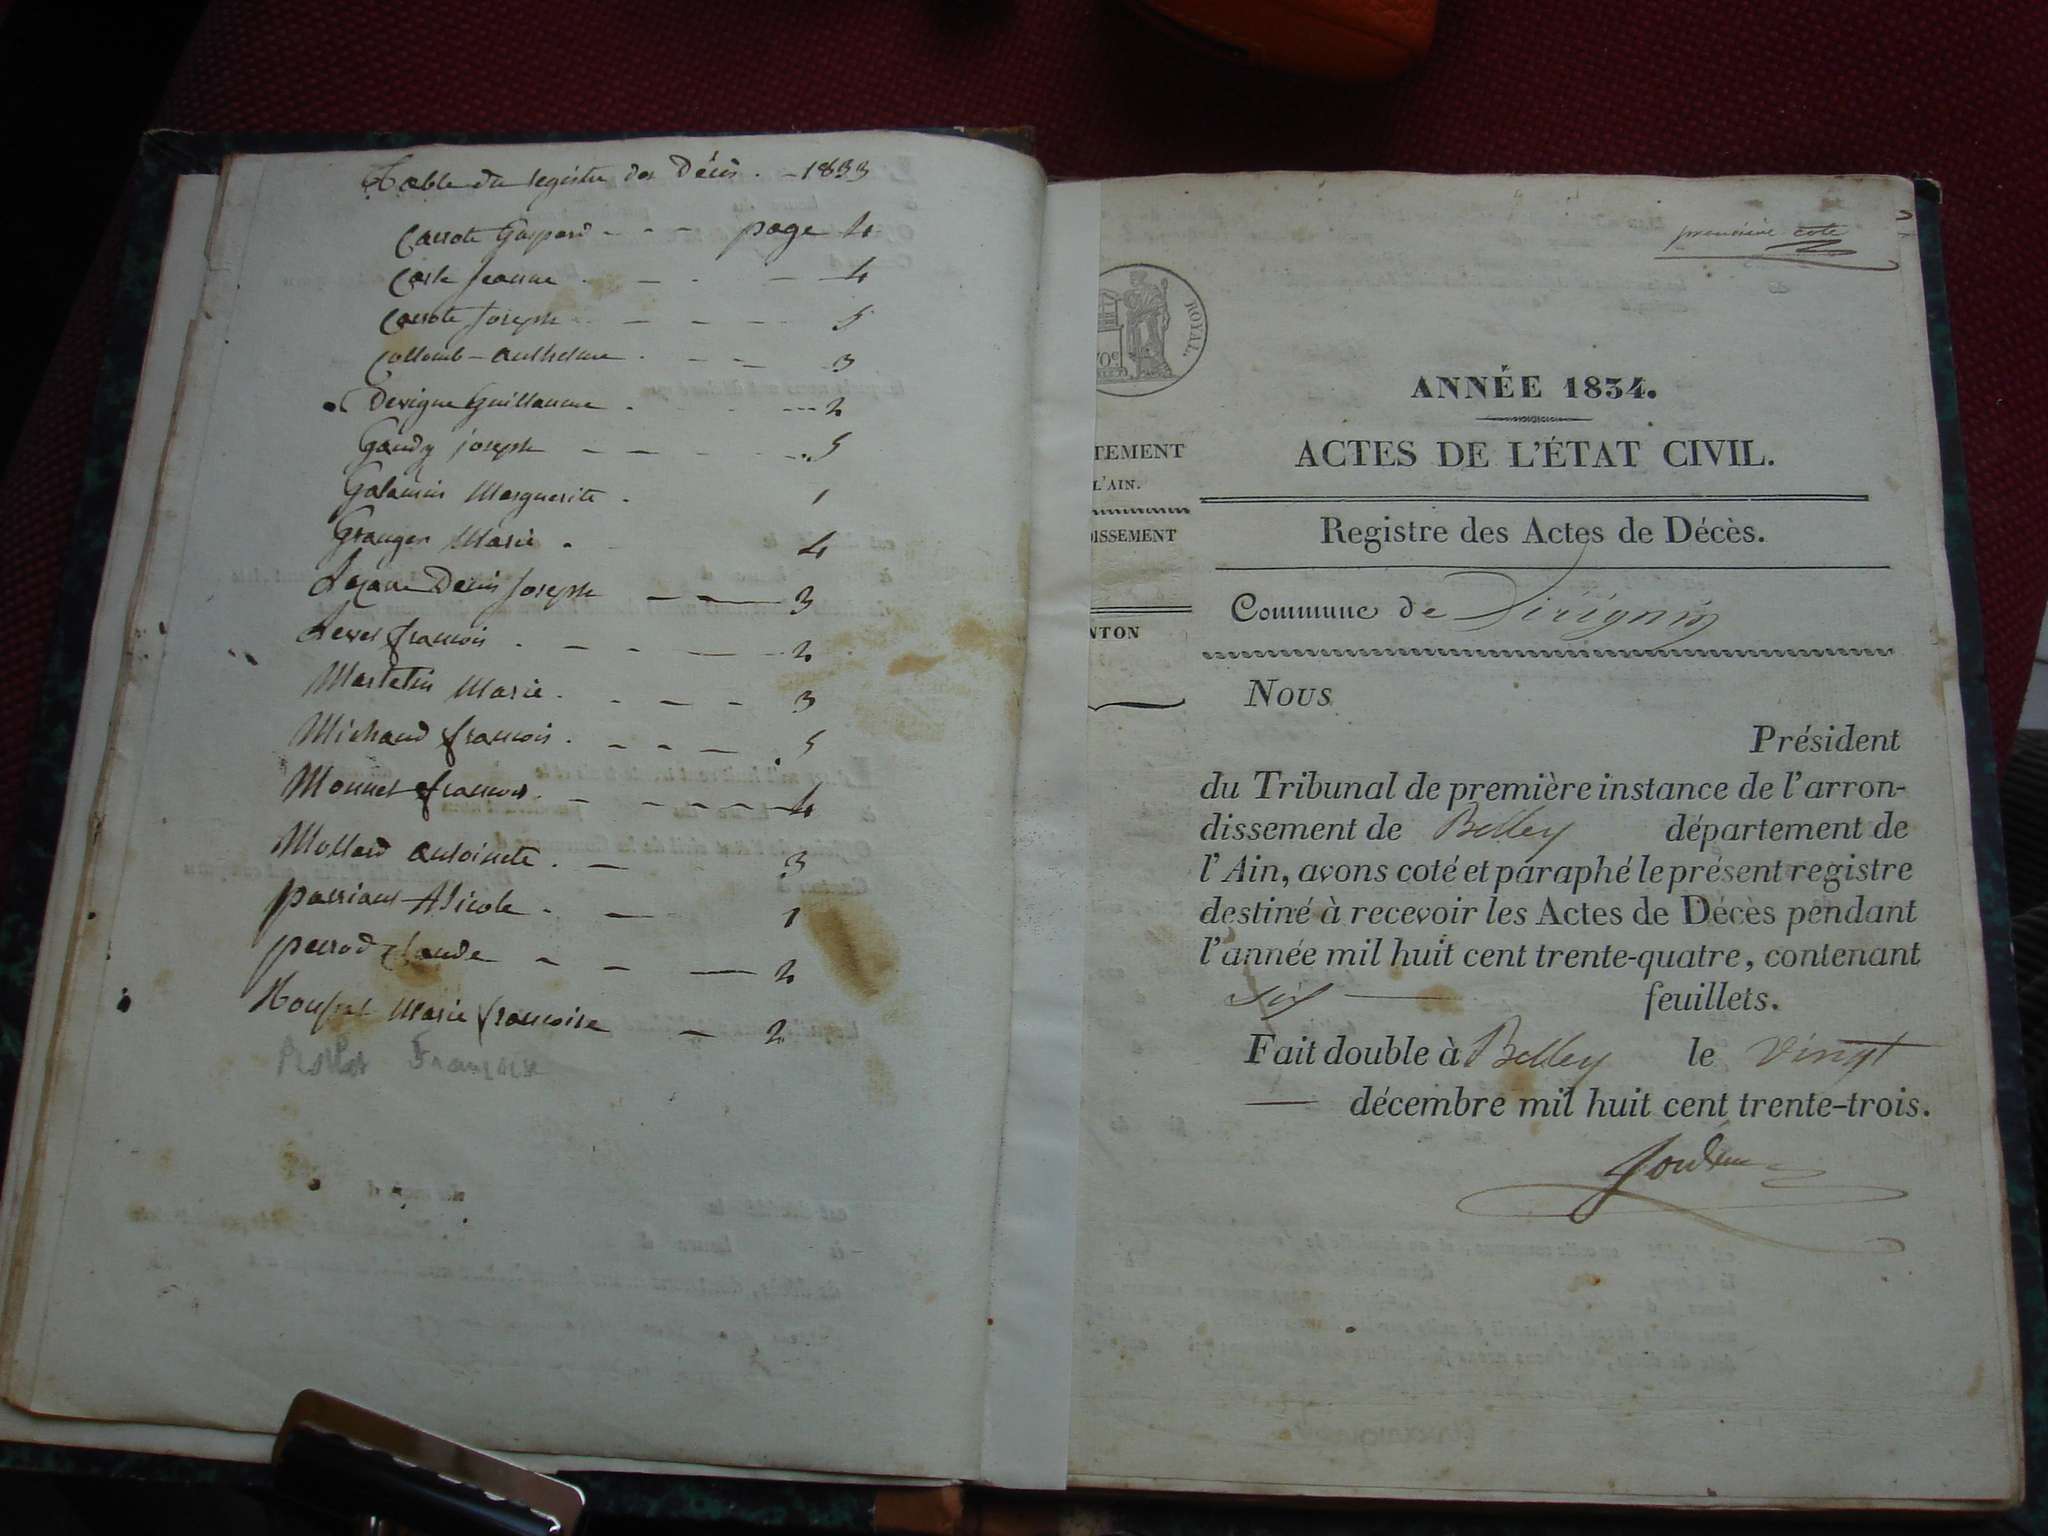 Table du registre des Décès. - 1833
Carrote Gaspard - - - page 4
Carle Jeanne . - . - 4
Carrote Joseph - - - 5
Collomb - anthelme . - - 3
Devigne Guillaume . - 2
Gaudy joseph - - - - 5
Marguerite . 1
Granger Marie . 4
Denis Joseph - - 3
françois . - - - 2
Martelin Marie . - - - 3
Michaud françois . - - - 5
Monnet françois . - - - - 4
Mollard antoinete . - 3
Nicole . - 1
perrod Claude - - - 2
Marie françoise - 2
Françoise
première cote
ROYAL.
70c
TEMENT
L'AIN.
DISSEMENT
NTON
ANNÉE 1834.
ACTES DE L'ÉTAT CIVIL.
Registre des Actes de Décès.
Commune de Virignin
Nous
Président
du Tribunal de première instance de l'arron-
dissement de Belley département de
l'Ain, avons coté et paraphé le présent registre
destiné à recevoir les Actes de Décès pendant
l'année mil huit cent trente-quatre, contenant
six — feuillets.
Fait double à Belley le vingt
— décembre mil huit cent trente-trois.